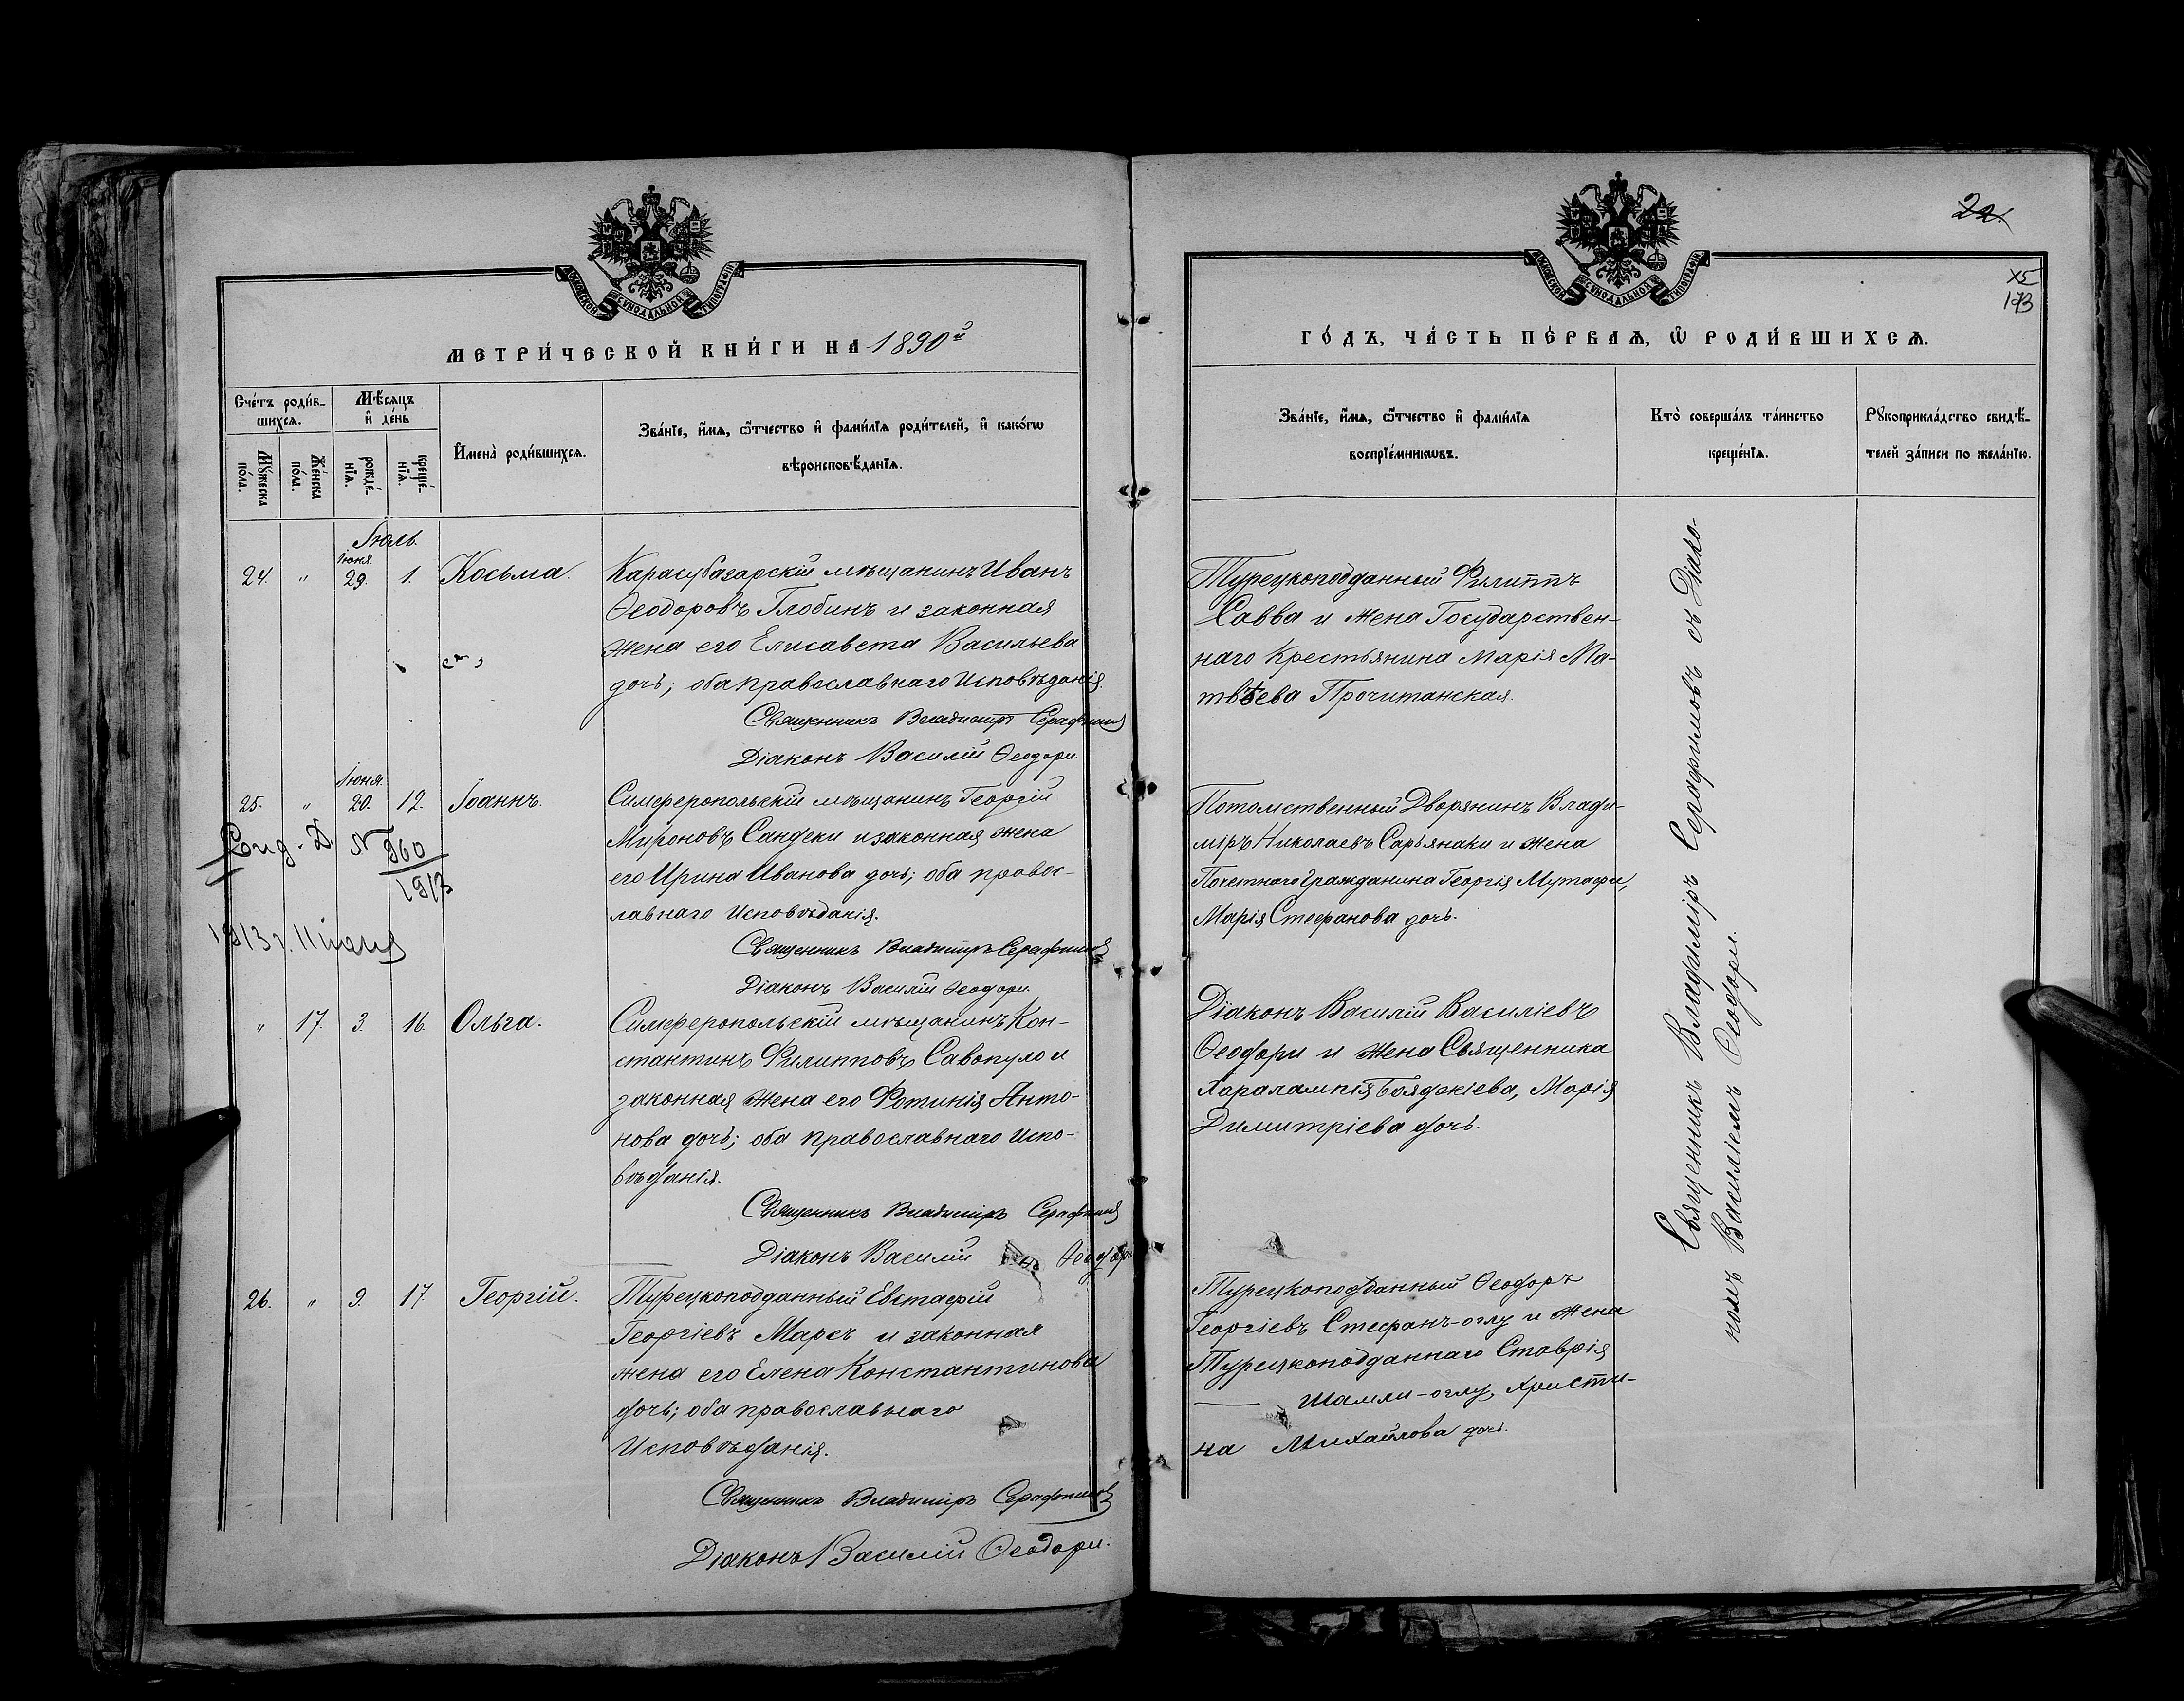 МОСКОВСКОЙ СѴНОДАЛЬНОЙ ТИПОГРАФІИ
МЕТРИ́ЧЕСКОЙ КНИ́ГИ НА 1890й
Сче́тъ роди́в-
шихсѧ.
Мѣ́сяцъ
и҆ де́нь
Мꙋ́жеска
по́ла.
Же́нска
по́ла.
рожде́-
нїѧ.
креще́-
нїѧ.
И҆мена̀ роди́вшихсѧ.
Зва́нїе, и҆́мѧ, ѻ҆́тчество и҆ фами́лїѧ роди́телей, и҆ како́гѡ
вѣроисповѣ́данїѧ.
Іюль.
Іюня
24. " 29. 1. Косьма.
Карасубазарскій мѣщанинъ Иванъ
Ѳеодоровъ Глобинъ и законная
жена его Елисавета Васильева
дочь; оба православнаго Исповѣданія.
Священникъ Владиміръ Серафимов
Діаконъ Василій Ѳеодори.
Іюня
25. " 20. 12. Іоаннъ.
Симферопольскій мѣщанинъ Георгій
Мироновъ Сандеки и законная жена
его Ирина Иванова дочь; оба правос-
лавнаго Исповѣданія.
Священникъ Владиміръ Серафимов
Діаконъ Василій Ѳеодори.
№ 960
1913
1913 г. 11
" 17. 3. 16. Ольга.
Симферопольскій мѣщанинъ Кон-
стантинъ Филипповъ Савопуло и
законная жена его Фотинія Анто-
нова дочь; оба православнаго Испо-
вѣданія.
Священникъ Владиміръ Серафимов
Діаконъ Василій Ѳеодори
26. " 9. 17. Георгій.
Турецкоподданный Евстафій
Георгіевъ Марсъ и законная
жена его Елена Константинова
дочь; оба православнаго
Исповѣданія.
Священникъ Владиміръ Серафимов
Діаконъ Василій Ѳеодори.
22.
173
МОСКОВСКОЙ СѴНОДАЛЬНОЙ ТИПОГРАФІИ
ГО́ДЪ, ЧА́СТЬ ПЕ́РВАѦ, Ѽ РОДИ́ВШИХСѦ.
Зва́нїе, и҆́мѧ, ѻ҆́тчество и҆ фами́лїѧ
воспрїе́мникѡвъ.
Кто̀ соверша́лъ та́инство
креще́нїѧ.
Рꙋкоприкла́дство свидѣ́-
телей за́писи по жела́нїю.
Турецкоподданный Филиппъ
Савва и жена Государствен-
наго Крестьянина Марія Ма-
твѣева Прочитанская.
Потомственный Дворянинъ Влади-
міръ Николаевъ Сарьянаки и жена
Почетнаго Гражданина Георгія Мутафи,
Марія Стефанова дочь.
Діаконъ Василій Василіевъ
Ѳеодори и жена Священника
Харалампія Бояджіева, Марія
Димитріева дочь.
Турецкоподданный Ѳеодоръ
Георгіевъ Стефанъ-оглу и жена
Турецкоподданнаго Ставрія
Шамли-оглу, Христи-
на Михайлова дочь.
Священникъ Владиміръ Серафимовъ съ Діако-
номъ Василіемъ Ѳеодори.